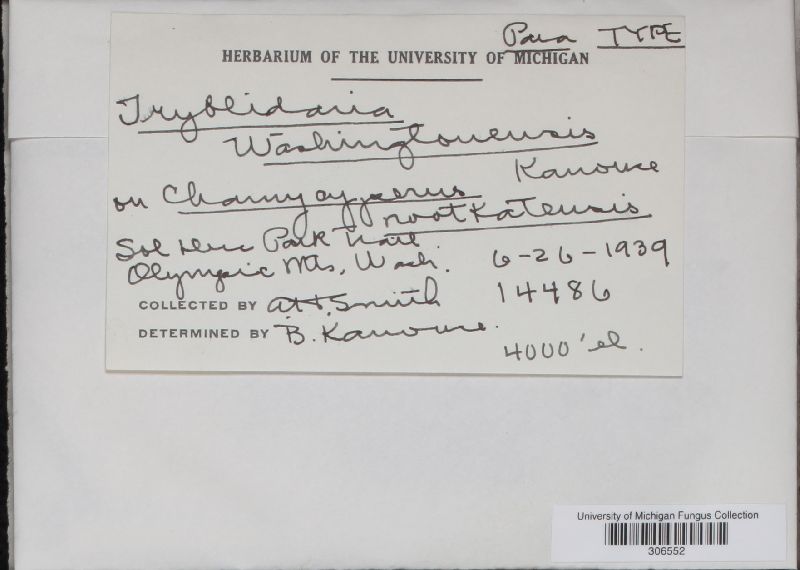 Para TYPE
HERBARIUM OF THE UNIVERSITY OF MICHIGAN
Tryblidaria
Washingtonensis
Kanouse
on Chamycyperus
nootkatensis
Sol Duc Park Trail
Olympic Mts, Wash. 6-26-1939
COLLECTED BY A.H. Smith 14486
DETERMINED BY B. Kanouse.
4000' el.
University of Michigan Fungus Collection
306552